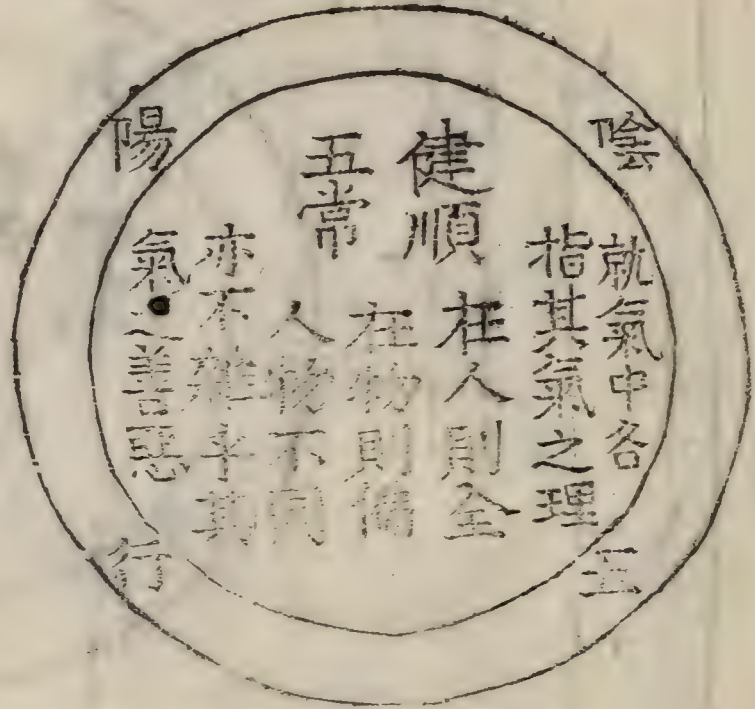 陰
陽
五
行
就氣中各
指其氣之理
健順
五常
在人則全
在物則偏
人物不同
亦不雜乎其
氣之善惡